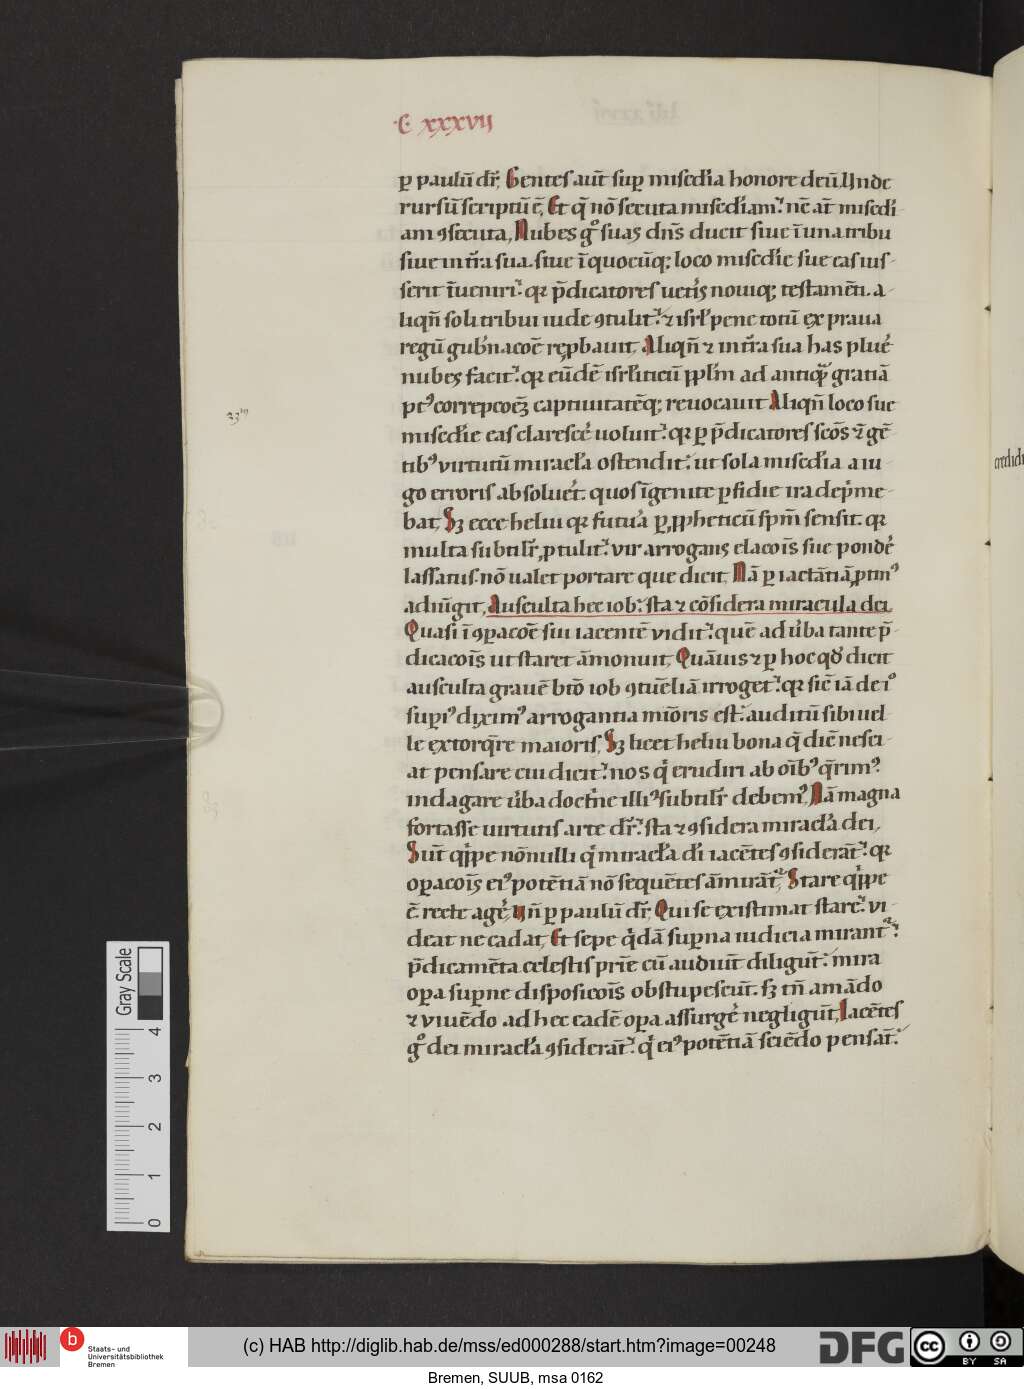 .C. xxxvij
ꝑ paulū dr̄, Gentes aut̄ suꝑ mis̄cdia honore deū. Unde
rursū scriptū ē, Et q̄ nō secuta mis̄cdiam. nc̄ at̄ mis̄cdi
am ꝯsecuta, Nubes gͦ suas dn̄s ducit siue ī una tribu
siue in tr̄a sua. siue ī quocūq; loco mis̄cdie sue eas ius
serit īueniri. qꝛ p̄dicatores uet̄is nouiq; testamēti. a
liqn̄ soli tribui iude ꝯtulit. ⁊ isrl̄ pene totū ex praua
regū gub̄nacōe reꝓbauit, Aliqn̄ ⁊ in tr̄a sua has plue͛
nubes facit. qꝛ eūdē isrl̄iticū ppl̄m ad antiquā gratiā
pꝰ correpcoēꝫ captiuitatēq; reuocauit Aliqn̄ loco sue
mis̄cdie eas claresce͛ uoluit. qꝛ ꝑ p̄dicatores scōs ī gē
tibꝰ virtutū miracl̄a ostendit. ut sola mis̄cdia a iu
go erroris absoluet͛. quos īgenite ꝑfidie ira dep̄me
bat, Sꝫ ecce heliu qꝛ futura ꝑ ꝓpheticū spm̄ sensit. qꝛ
multa subtilr̄ ꝓtulit. vir arrogans elacōis sue ponde͛
lassatus. nō ualet portare que dicit, Nā ꝑ iactātiā ꝓtinꝰ
adiūgit, Ausculta hec iob. sta ⁊ cōsidera miracula dei,
Quasi ī ꝯꝑacoē sui iacentē vidit. quē ad ūba tante p̄
dicacōis ut staret āmonuit, Quāuis ⁊ ꝑ hoc qd̄ dicit
ausculta grauē bt̄o iob ꝯtuēliā irroget. qꝛ sic̄ iā de iꝰ
suꝑiꝰ diximꝰ arrogantia miōris est. auditū sibi uel
le extorq̄re maioris, Sꝫ licet heliu bona q̄ dic̄ nesci
at pensare cui dicit. nos qͥ erudiri ab oībꝰ q̄rimꝰ
indagare ūba doct̄ne illiꝰ subtilr̄ debemꝰ, Nā magna
fortasse uirtutis arte dr̄. sta ⁊ ꝯsidera miracl̄a dei,
Sūt qͥppe nōnulli qͥ miracl̄a di͛ iacētes ꝯsiderāt. qꝛ
oꝑacōis eiꝰ potētiā nō sequētes āmirāt, Stare qͥppe
ē. recte age͛, Uñ ꝑ paulū dr̄, Qui se existimat stare. vi
deat ne cadat, Et sepe qͥdā suꝑna iudicia mirantꝛ.
p̄dicamēta celestis prīe cū audiūt diligūt. mira
oꝑa suꝑne disposicōis obstupescūt. sꝫ tn̄ amādo
⁊ viuēdo ad hec eadē oꝑa assurge͛ negligūt, Iacētes
gͦ dei miracl̄a ꝯsiderāt. qͥ eiꝰ potētiā sciēdo pensāt.
33m
Gray Scale
4
3
2
1
0
b
Staats- und
Universitätsbibliothek
Bremen
(c) HAB http://diglib.hab.de/mss/ed000288/start.htm?image=00248
DFG
cc
BY SA
Bremen, SUUB, msa 0162